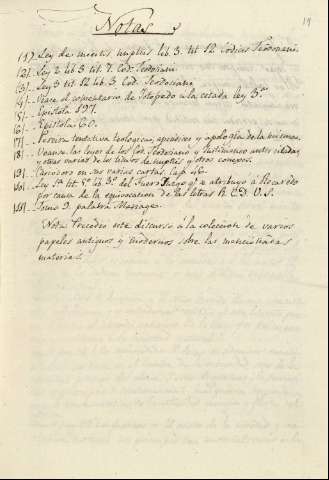 Notas
19
(1) Ley de incestis nuptiis lib 3. tit 12 Codicis Teodosiani.
(2) Ley 2 lib 3 tit 7. Cod. Teodosiani
(3) Ley 3 tit 12 lib 3. Cod. Teodosiano
(4) Vease el comentario de Gotofredo a la citada ley 3ª
(5) Epistola 197.
(6) Epistola 60.
(7) teologica, y apologia de la misma.
(8) Veanse las leyes de los Cod. Teodosiano y Justinianeo antes citadas,
y otras varias de los titulos de nuptiis y otros conexos.
(9) Casiodoro en sus varias cartas. Cap. 46.
(10) Ley 1ª tit 5º lib 3º del Fuero Juzgo qe se atribuyó a Recaredo
por causa de la equivocacion de las letras R. C. D. V. S.
(11) Tomo 9. palabra Mariage.
Nota. Precedio este discurso á la coleccion de varios
papeles antiguos y modernos sobre las mencionadas
materias.